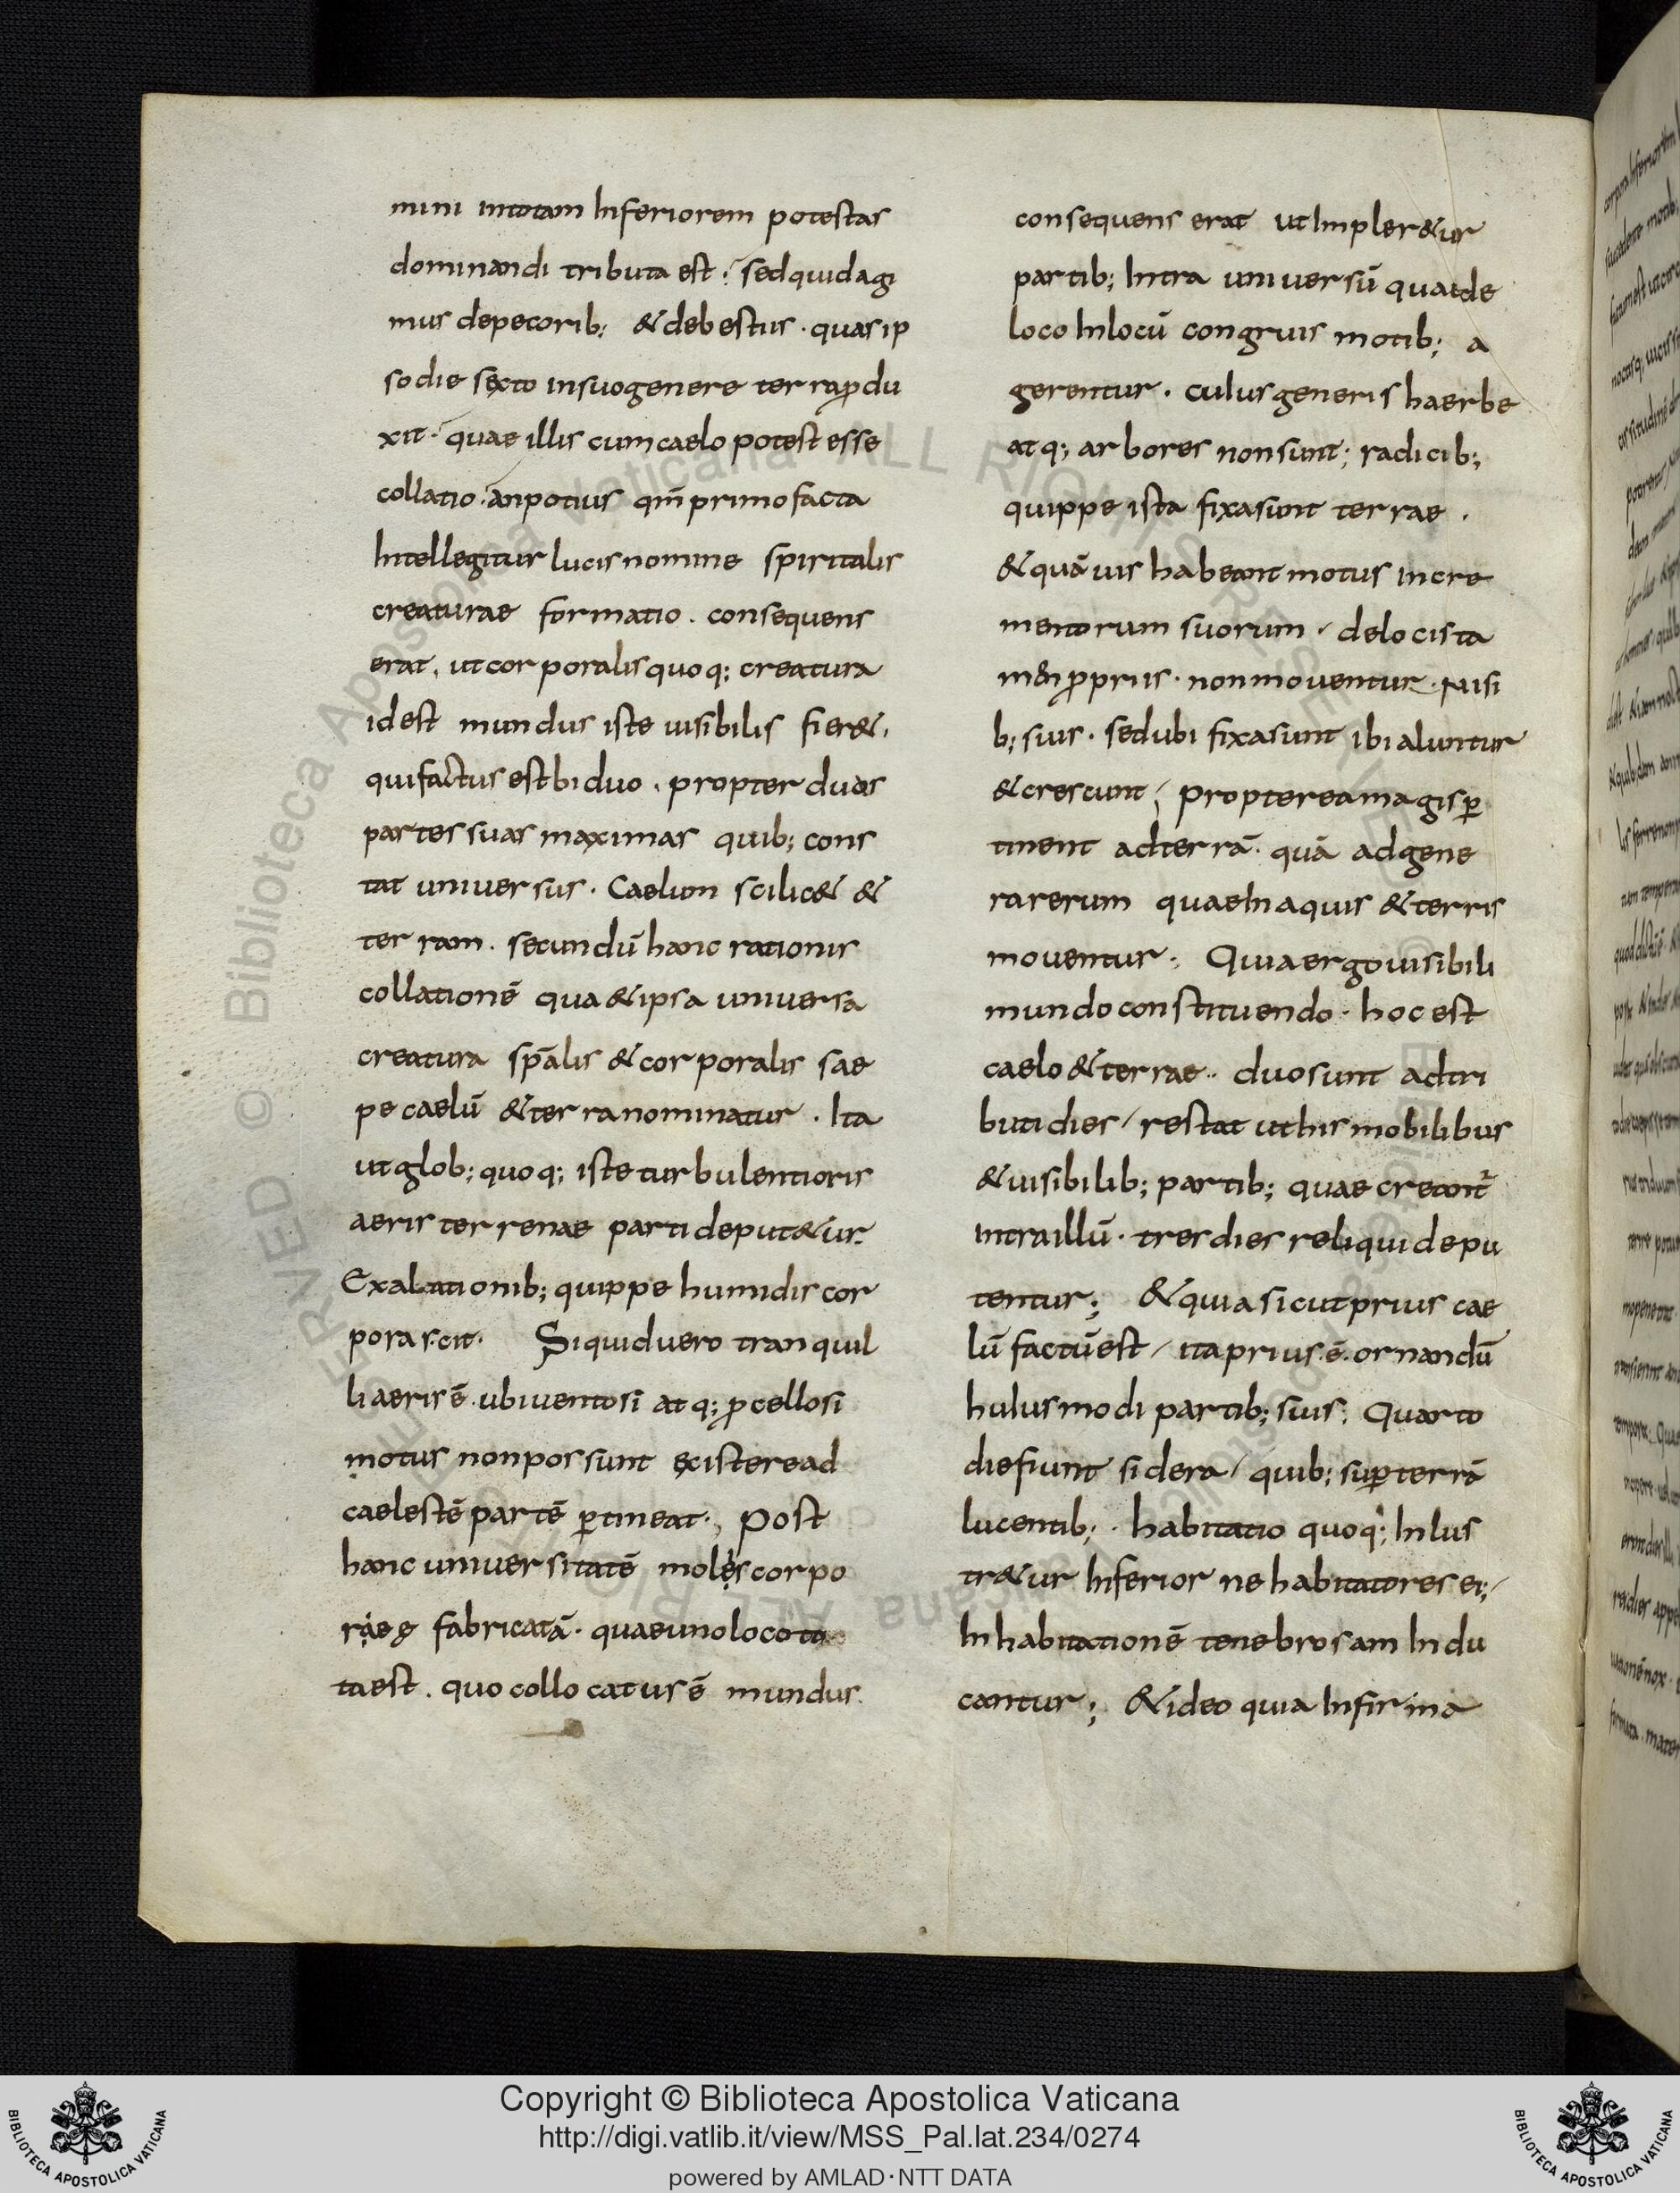 mini intotam Inferiorem potestas
dominandi tributa est; sedquidagi
mus depecorib; &debestiis · quas ip
sodie sexto insuogenere terraꝓdu
xit · quae illis cumcaelo potest esse
collatio · anpotius qm̄ primo facta
Intellegitur lucisnomine spiritalis
creaturae formatio . consequens
erat, utcorporalisquoq; creatura
idest mundus iste uisibilis fier&,
quifactus estbiduo . propter duas
partes suas maximas quib; cons
tat uniuersus · Caelum scilic& &
terram . secundū hanc rationis
collationē qua &ipsa uniuersa
creatura sp̄alis &corporalis sae
pe caelū &terranominatur . Ita
utglob; quoq; iste turbulentioris
aeris terrenae parti deput&ur.
Exalationib; quippe humidis cor
porascit · Siquiduero tranquil
li aeris ē · ubiuentosi atq; ꝓcellosi
motus nonpossunt existeread
caelestē partē ꝑtineat ·, Post
hanc uniuersitatē moles corpo
raeę fabricatā · quaeunoloco to
taest . quo collocatus ē mundus.
consequens erat utImpler&ur
partib; Intra uniuersū quaede
loco Inlocū congruis motib; a
gerentur . cuIusgeneris haerbe
atq; arbores nonsunt; radicib;
quippe ista fixasunt terrae .
&quāuis habeant motus incre
mentorum suorum · delocista
m&n ꝓpriis · nonmouentur · Nisi
b; suis · sedubi fixasunt ibialuntur
&crescunt; proptereamagisꝑ
tinent adterrā · quā adgene
rarerum quaeInaquis &terris
mouentur ; Quiaergouisibili
mundoconstituendo · hoc est
caelo &terrae · duosunt adtri
butidies / restat utHis mobilibus
&uisibilib; partib; quae creant̄
intraillū · tres dies reliqui depu
tentur ; &quiasicutprius cae
lū factūest / itaprius · ē · ornandū
huIusmodi partib; suis ; Quarto
diefiunt sidera / quib; suꝑterrā
lucentib; · habitatio quoq; Inlus
tr&ur Inferior ne habitatores ei;
Inhabitationē tenebrosam Indu
cantur ; &ideo quia Infirma
Copyright © Biblioteca Apostolica Vaticana
http://digi.vatlib.it/view/MSS_Pal.lat.234/0274
powered by AMLAD · NTT DATA
BIBLIOTECA APOSTOLICA VATICANA
BIBLIOTECA APOSTOLICA VATICANA